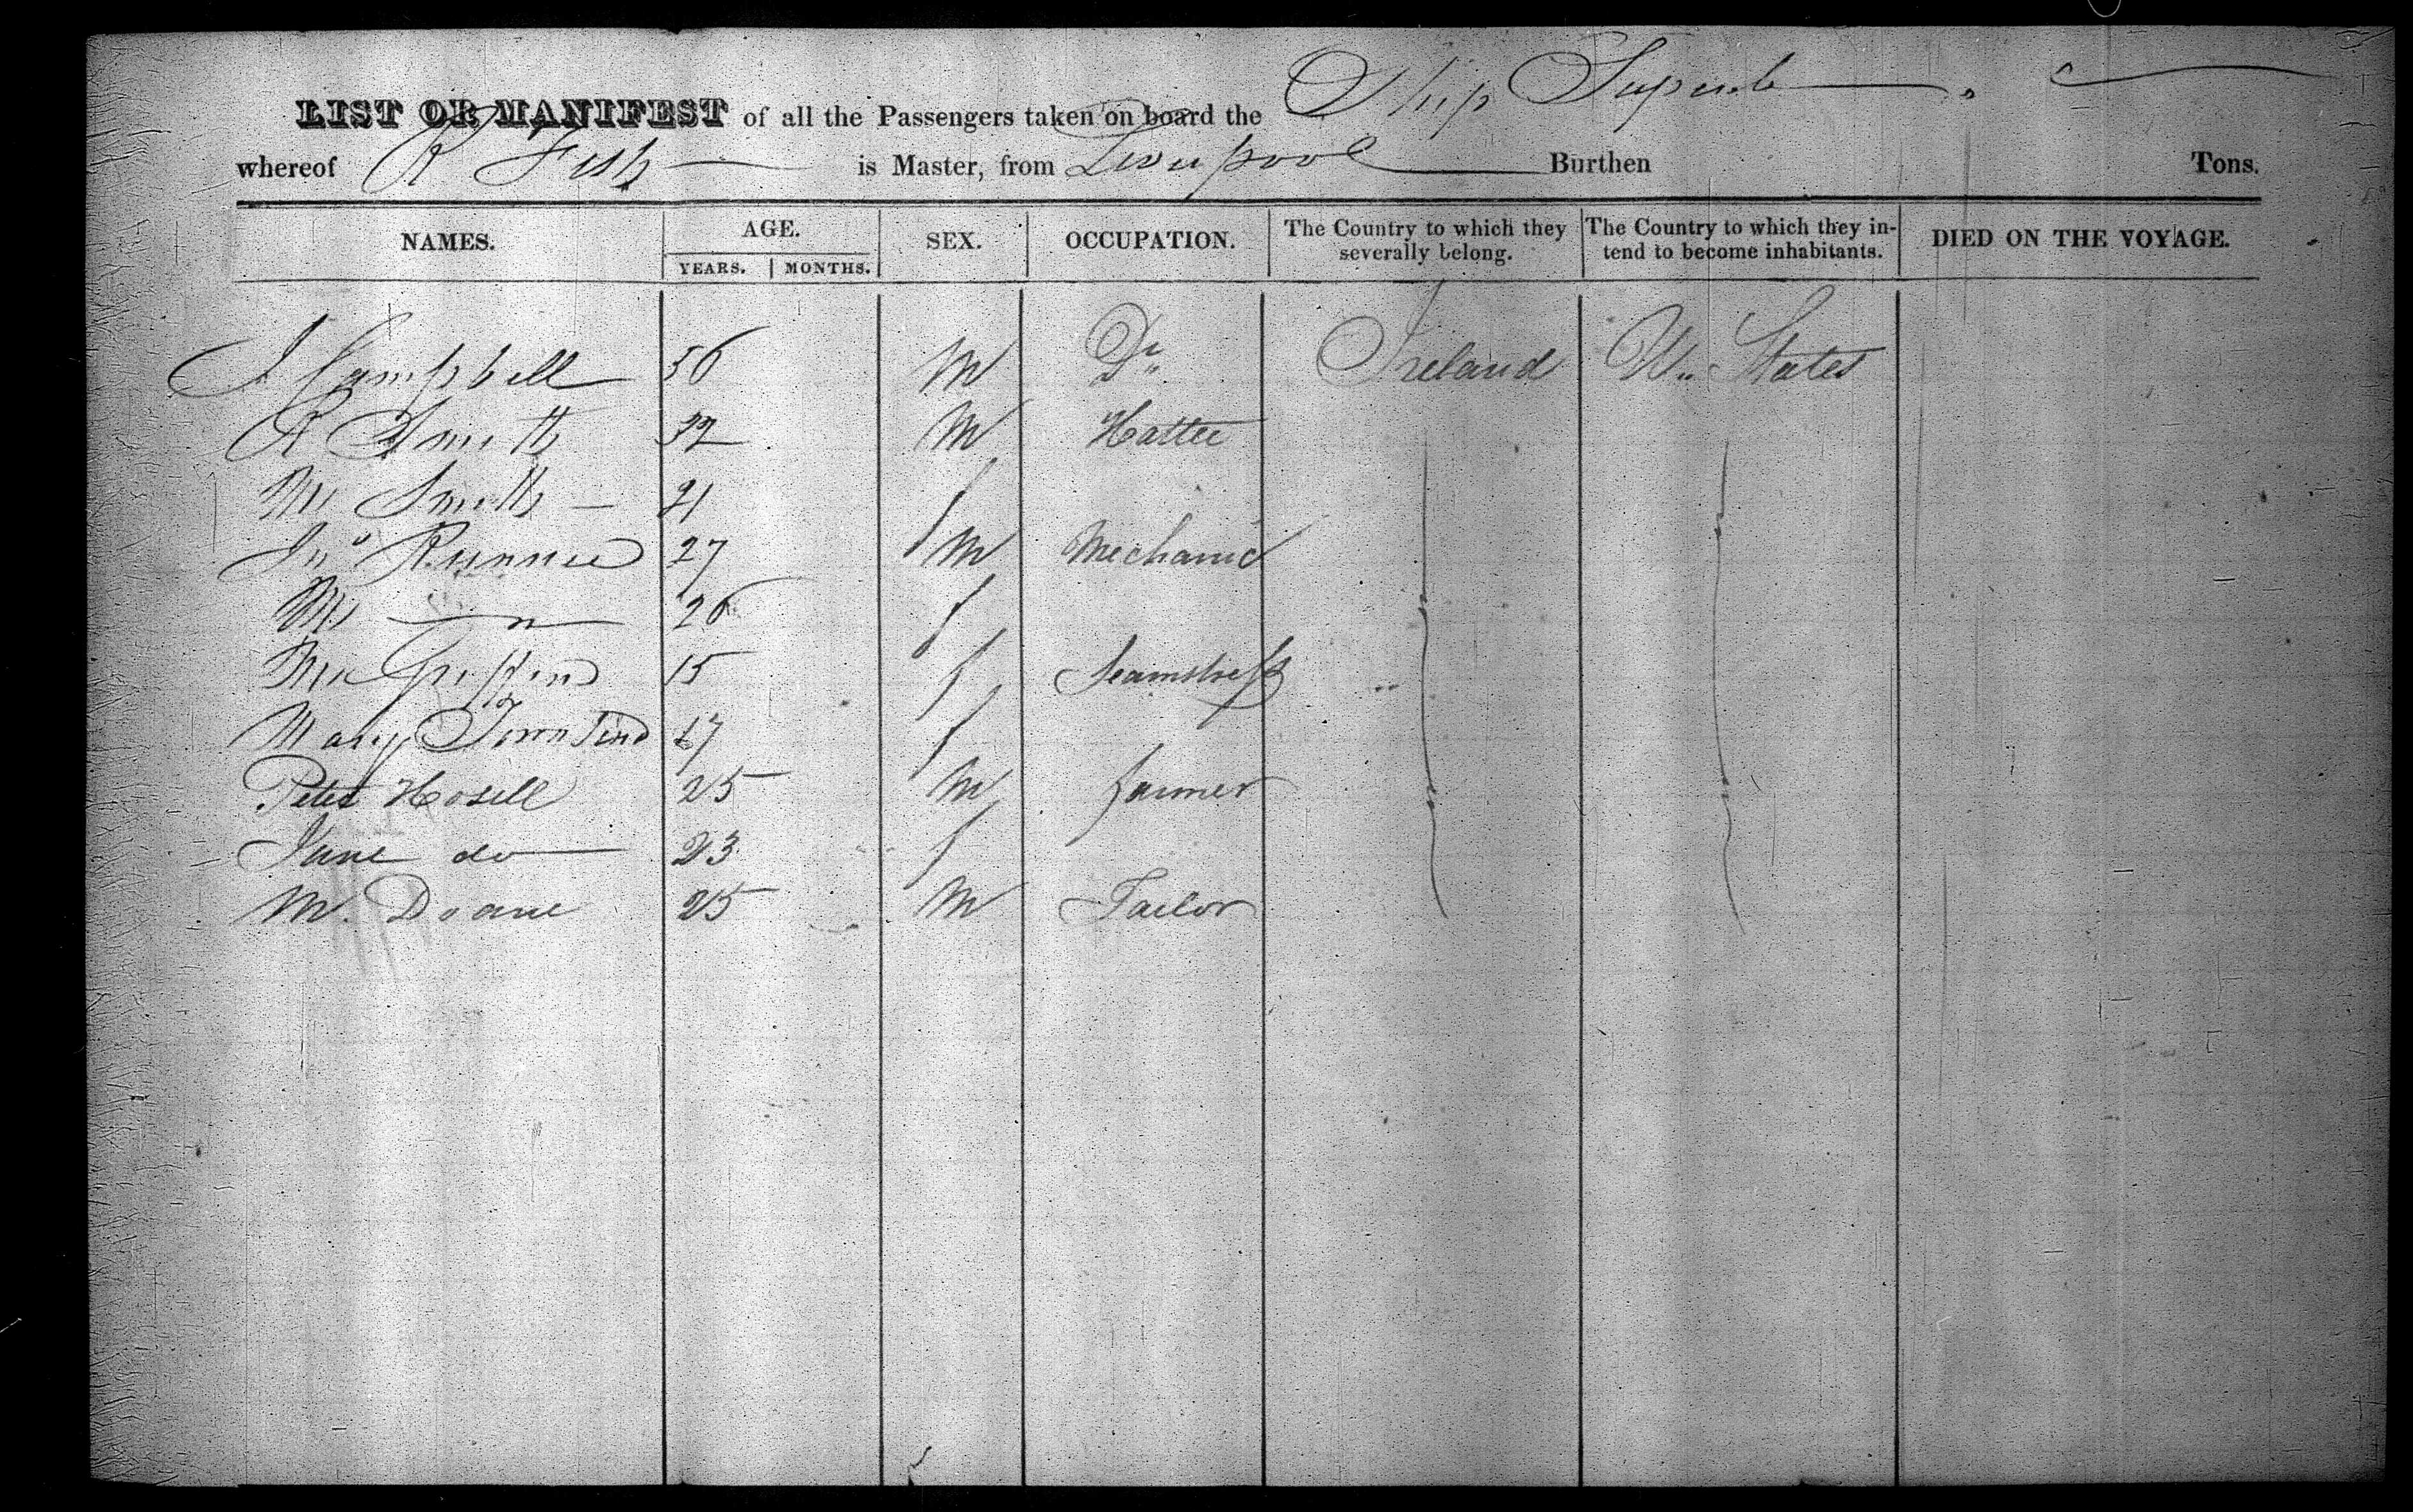 LIST OR MANIFEST of all the Passengers taken on board the Ship Superb
whereof R Fish is Master, from Liverpool Burthen Tons.
NAMES. AGE. SEX. OCCUPATION. The Country to which they severally belong. The Country to which they intend to become inhabitants. DIED ON THE VOYAGE.
YEARS. MONTHS.
J Campbell 56 M Dr Ireland U. States
R Smith 32 M Hatter
Mrs Smith 21 f
Jno 27 M Mechanic
Mrs " 26 f
Griffin 15 f Seamstress
Mary Townsend 17 f
Peter Hosell 25 M farmer
Jane do 23 f
M. Doane 25 M Tailor